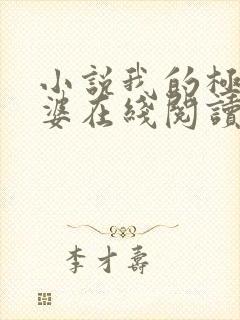 小説我的極
婆在綫閱讀
李才壽